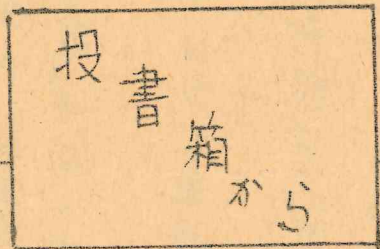 投書箱から